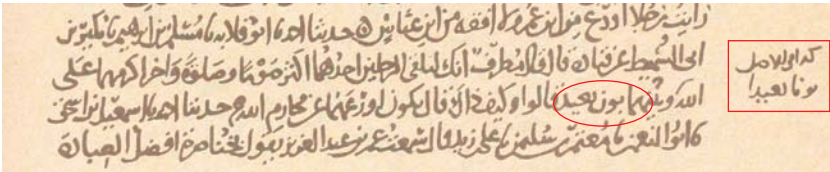 رايت رجلا اورع من ابن عمر ولا افقه من ابن عباس ه حدثنا احمد نا ابو قلابه نا مسلم بن ابرهيم نا بن
ابي السميط عن قتادة قال قال مطرف انك لتلقى الرجلين احدهما اكثر صوما وصلوة واخر اكرمهما على
الله وبينهما بون بعيد قالوا وكيف ذاك قال يكون اورعهما عن محارم الله حدثنا احمد نا اسمعيل بن اسحق
نا ابو النعمن نا معتمر بن سليمن نا علي بن زيد قال سمعت عمر بن عبد العزيز يقول بخناصرة افضل العبادة
كذا في الاصل
بونا بعيدا